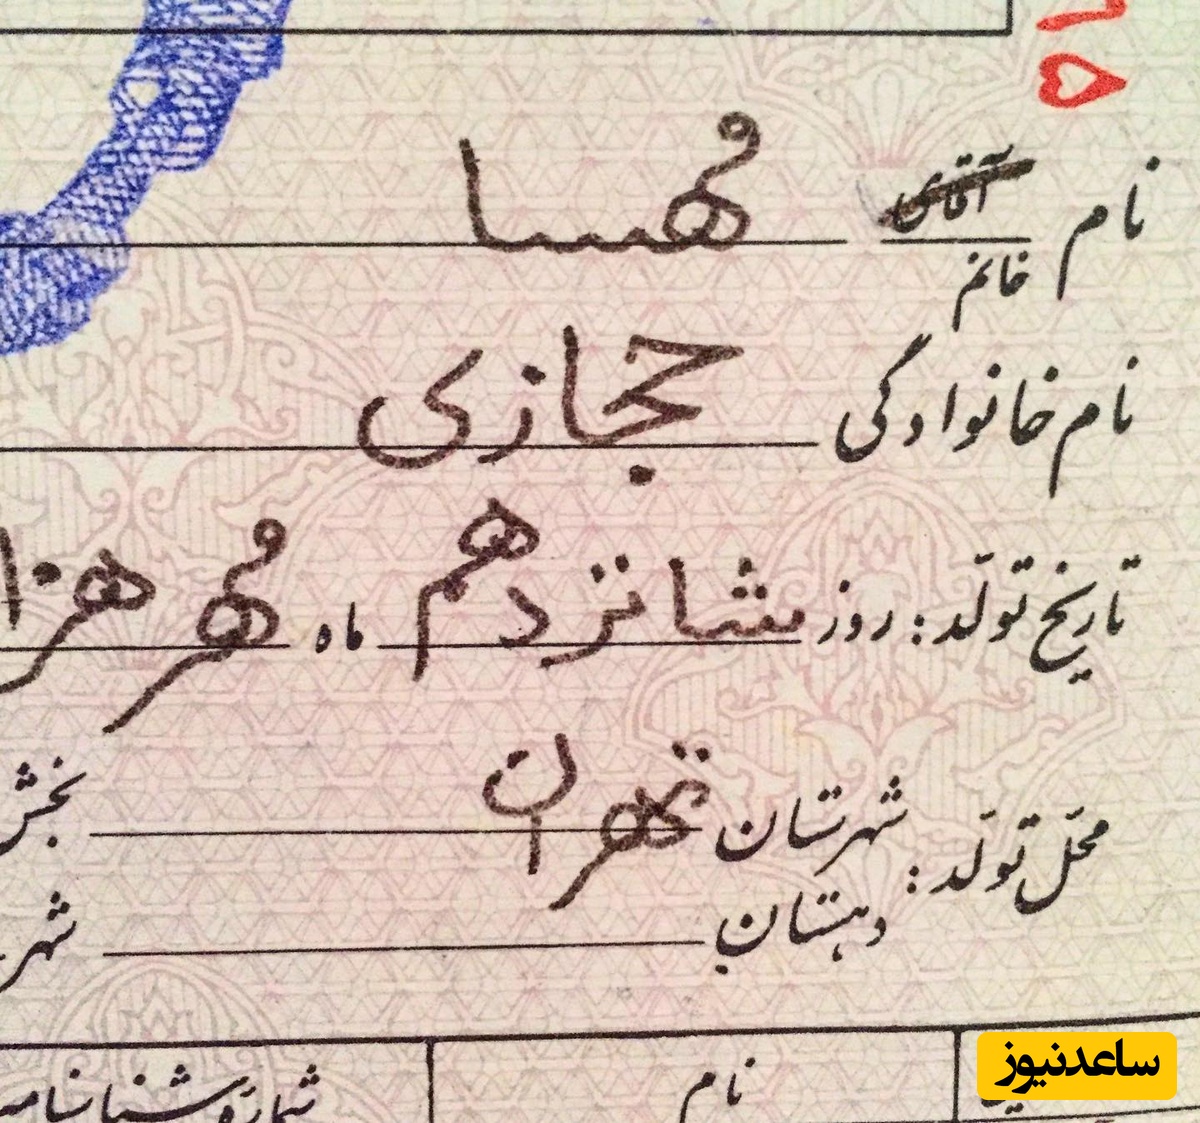 ۵
نام آقای مهسا
خانم
نام خانوادگی حجازی
تاریخ تولّد: روز شانزدهم ماه مهر هزا
محلّ تولّد: شهرستان تهران بخش
دهستان شهر
نام شماره شناسنامه
ساعدنیوز